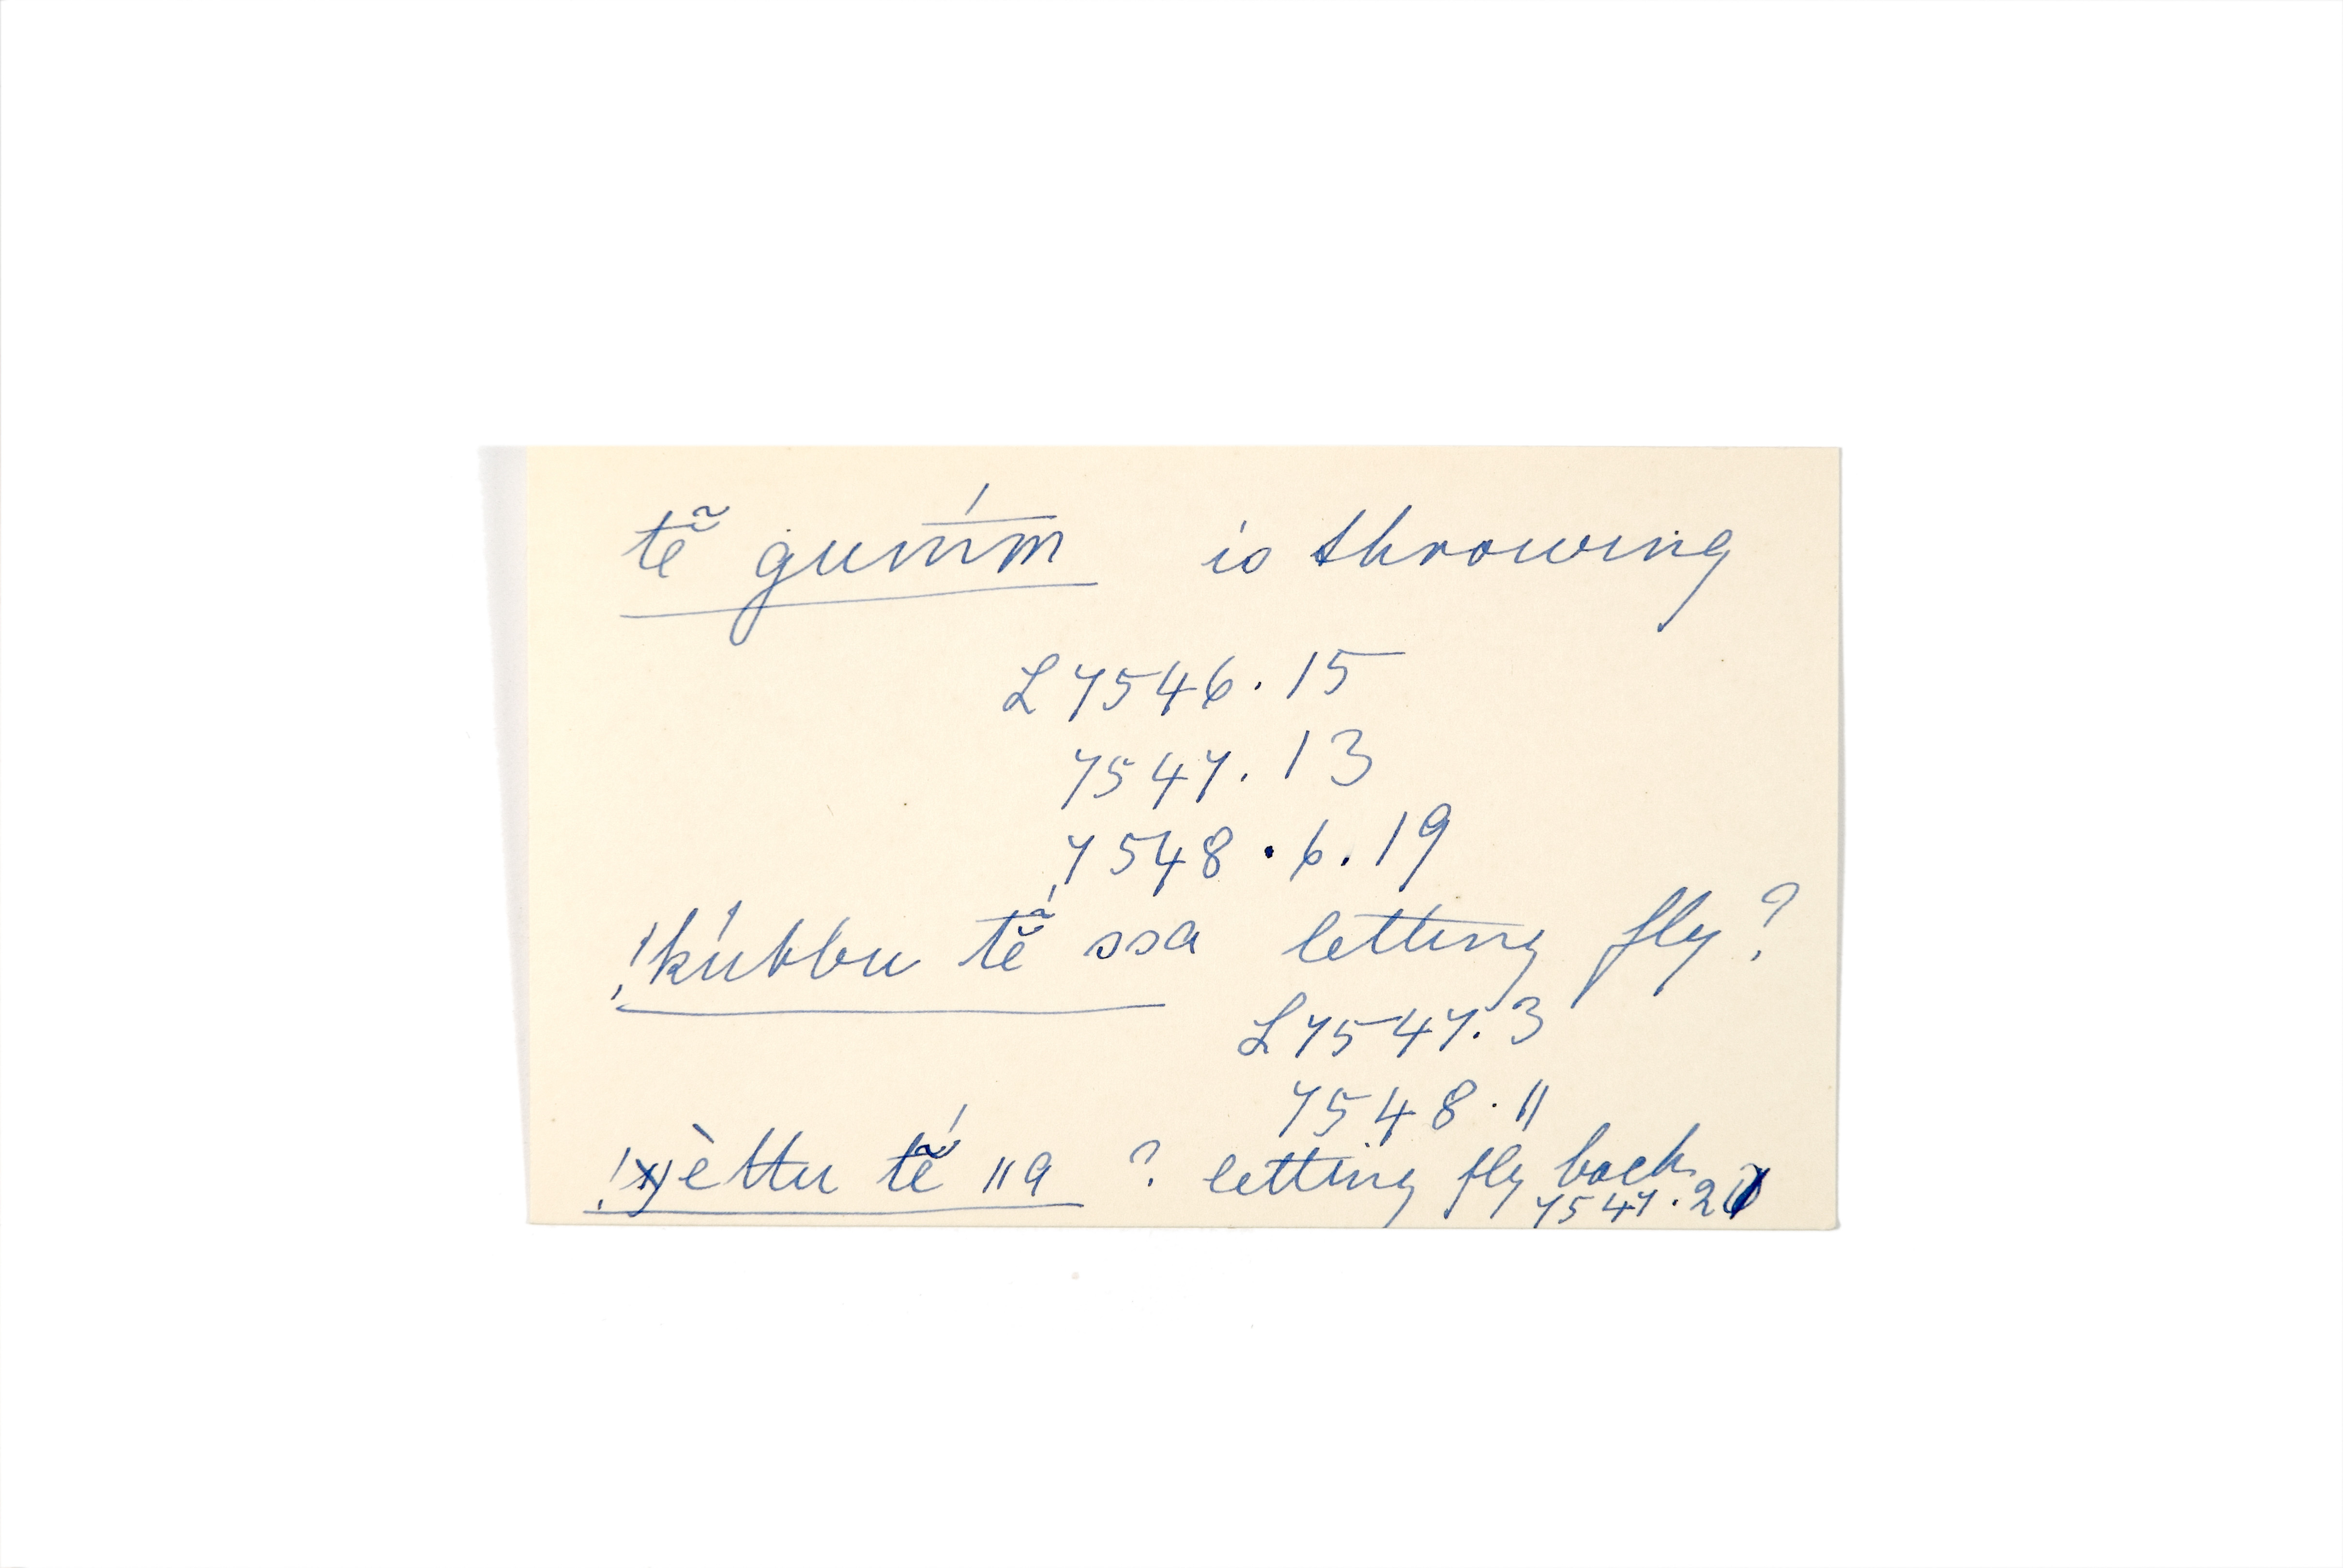 tẽ̆ gum̄́m is throwing
L 7546. 15
7547. 13
7548 . 6. 19
!kúbbu tẽ̆́ ssa letting fly?
L 7547. 3
7548. 11
tẽ̆́ ǁa ? letting fly back
7547.